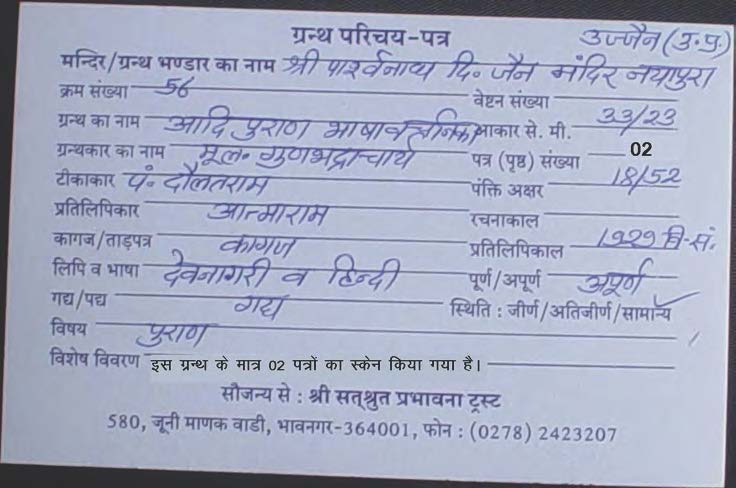 ग्रन्थ परिचय-पत्र उज्जैन (उ.प्र.)
मन्दिर/ग्रन्थ भण्डार का नाम श्री पार्श्वनाथ दि. जैन मंदिर नयापुरा
क्रम संख्या 56 वेष्टन संख्या
ग्रन्थ का नाम आदि पुराण भाषावचनिका आकार से. मी. 33/23
ग्रन्थकार का नाम मूल. गुणभद्राचार्य पत्र (पृष्ठ) संख्या 02
टीकाकार पं. दौलतराम पंक्ति अक्षर 18/52
प्रतिलिपिकार आत्माराम रचनाकाल
कागज/ताड़पत्र कागज प्रतिलिपिकाल 1929 वि.सं.
लिपि व भाषा देवनागरी व हिन्दी पूर्ण/अपूर्ण अपूर्ण
गद्य/पद्य गद्य स्थिति : जीर्ण/अतिजीर्ण/सामान्य
विषय पुराण
विशेष विवरण इस ग्रन्थ के मात्र 02 पत्रों का स्केन किया गया है।
सौजन्य से : श्री सत्श्रुत प्रभावना ट्रस्ट
580, जूनी माणक वाडी, भावनगर-364001, फोन : (0278) 2423207